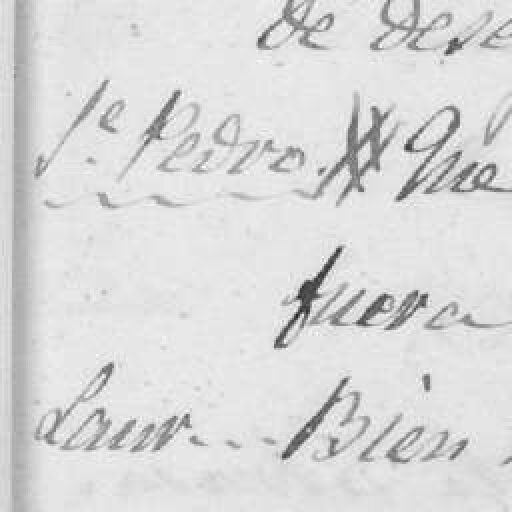 de dese
Sr. Pedro. Que
fuera
Laur... Bien